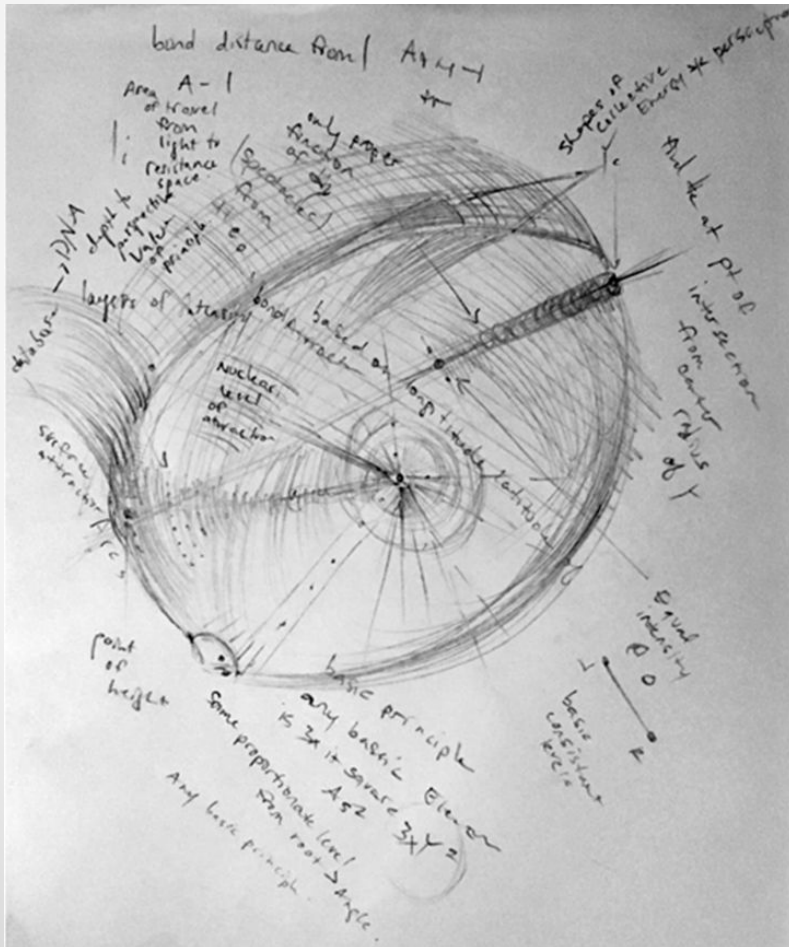 bond distance from
A - 1
Area
of travel
from
light to
resistance
space
only proper
function
of
(Spectacles)
from
shapes of
collective
Energy
perspective
at pt of
intersection
from center
radius
of Y
database → DNA
depth to
perspective
value
of
principle
layers of intensity
bond attraction
based on longitude latitude
Nuclear
level
of
attraction
surface
attraction
point
of
height
Equal
intensity
basic
consistent
levels
R
basic principle
any basic
is 3x it square
3xY=
Same proportionate level
from root > Angle.
Any basic principle.